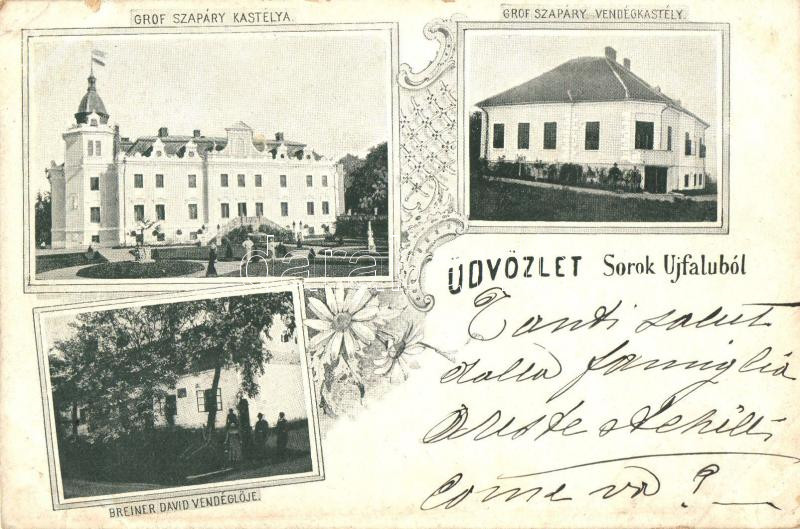 GROF SZAPÁRY KASTÉLYA.
GROF SZAPÁRY VENDÉGKASTÉLY.
ÜDVÖZLET Sorok Ujfaluból
Tanti salut
dalla famiglia
Oreste
come va?
BREINER DAVID VENDÉGLŐJE.
darabanth